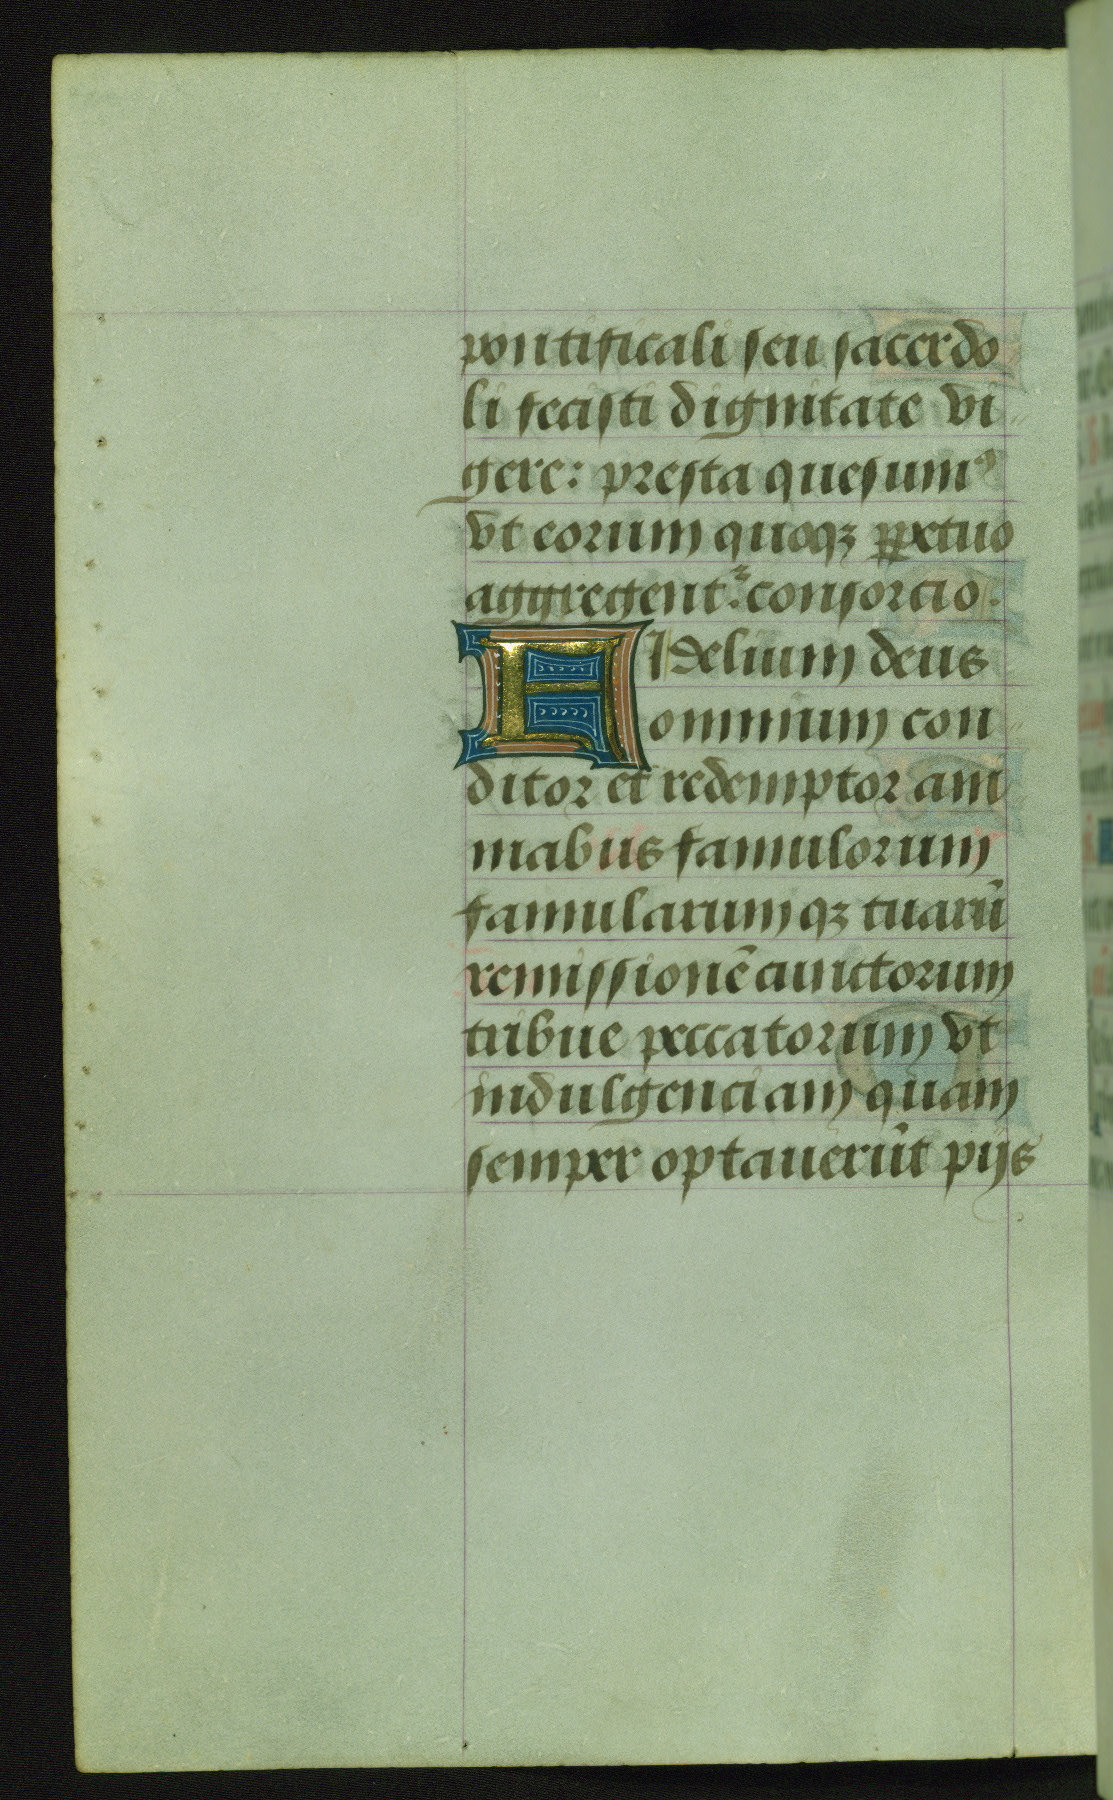 pontificali seu sacerdo
li fecisti dignitate vi
gere: presta quesumꝰ
vt eorum quoqꝫ ꝑpetuo
aggregent᷑ consorcio.
FIdelium deus
omnium con
ditor et redemptor ani
mabus famulorum
famularumqꝫ tuarū
remissionē cunctorum
tribue peccatorum vt
indulgenciam quam
semper optauerūt pijs